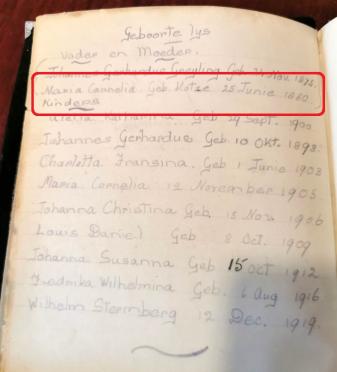 Geboorte lys
Vader en Moeder.
Johannes Gerhardus Greyling Geb. 21 Nov. 1875.
Maria Cornelia. Geb. Kotze 25 Junie 1880.
Kinders
Katharina. Geb 24 Sept. 1900
Johannes Gerhardus Geb 10 Okt. 1898.
Charlotta Fransina. Geb 1 Junie 1903
Maria Cornelia 12 November 1905
Johanna Christina Geb 15 Nov 1906
Louis Daniel Geb 8 Oct. 1909
Johanna Susanna Geb 15 Oct 1912
Fredrika Wilhelmina Geb. 6 Aug 1916
Wilhelm Sternberg 12 Dec. 1919.